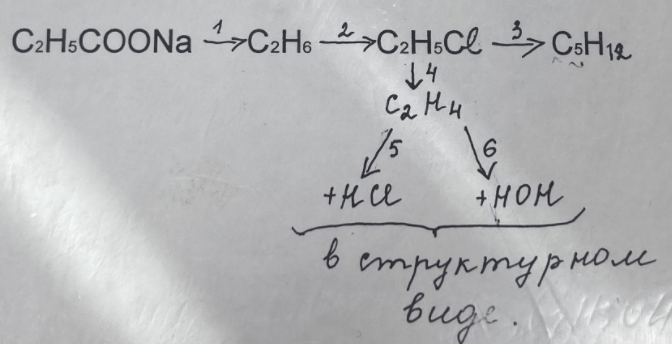 C₂H₅COONa 1→ C₂H₆ 2→ C₂H₅Cl 3→ C₅H₁₂
↓4
C₂H₄
5 6
+HCl +HOH
в структурном
виде.